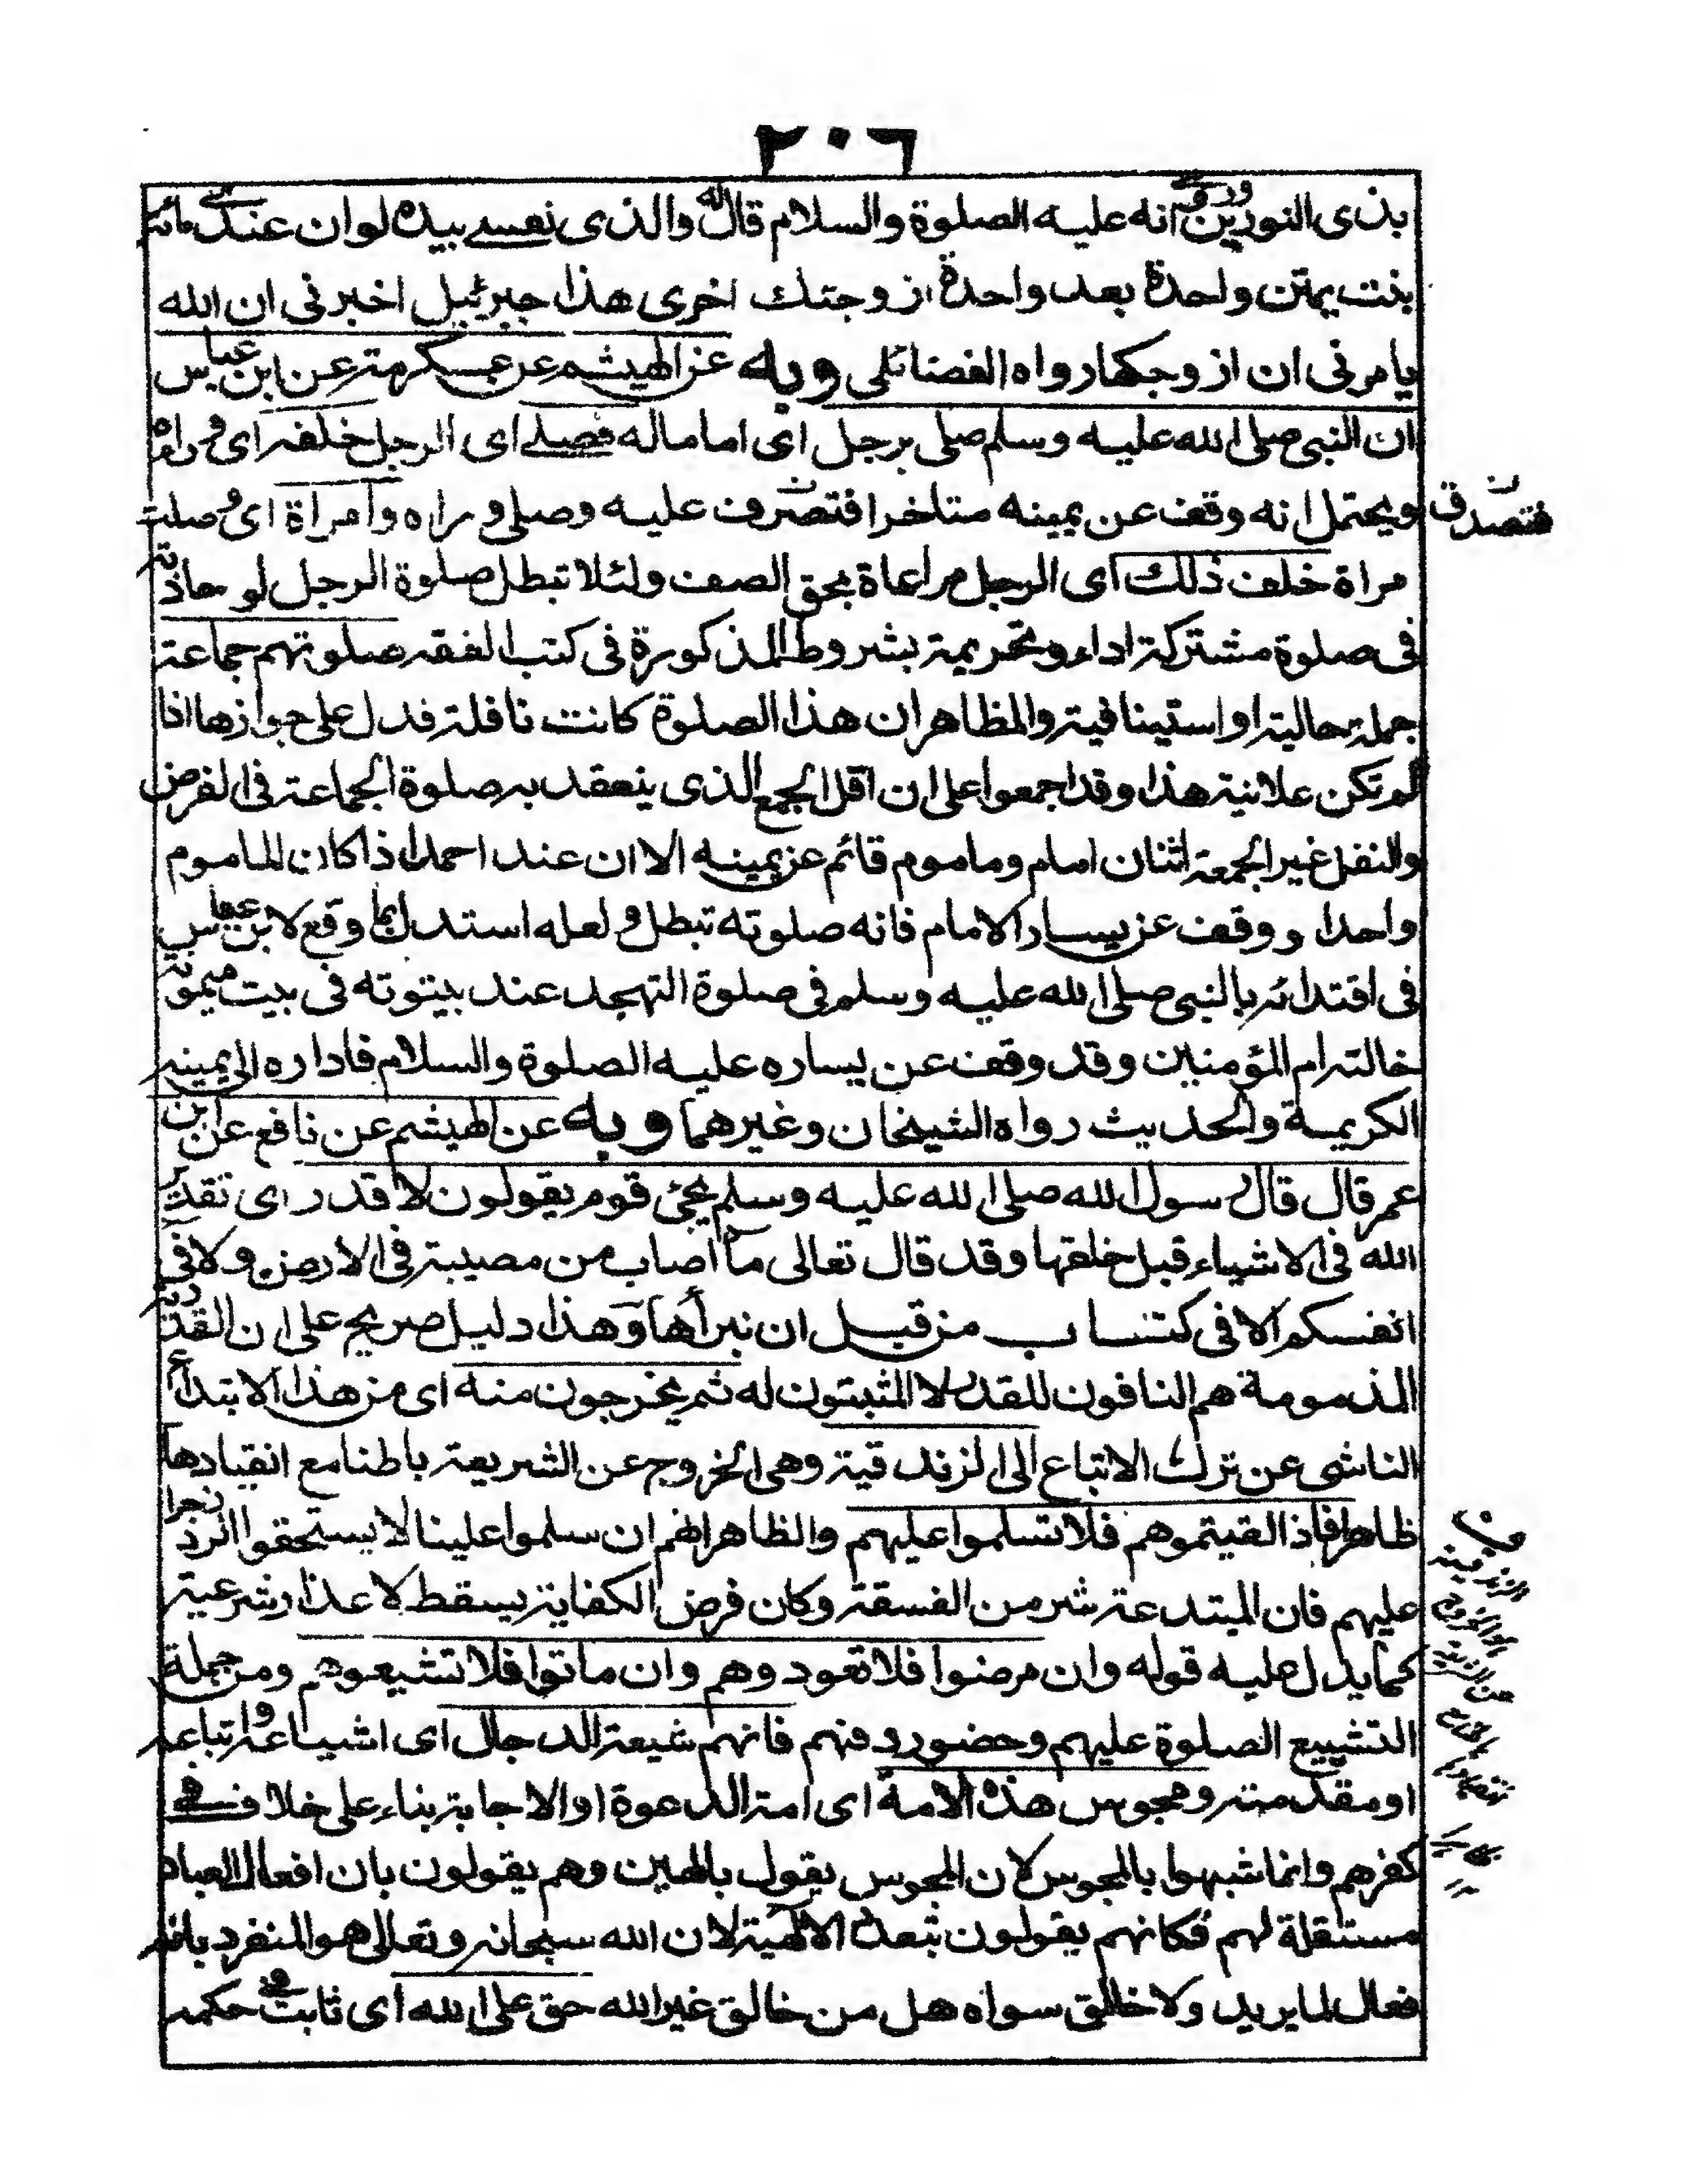 ٢٠٦
بذى النورين وروى انه عليه الصلوة والسلام قال له والذى نفسى بيده لو ان عندى مائة
بنت يمتن واحدة بعد واحدة ازوجتك اخرى هذا جبرئيل اخبرنى ان الله
يامرنى ان ازوجكها رواه الفضائلى وبه عن الهيثم عن عكرمة عن ابن عباس
ان النبى صلى الله عليه وسلم صلى برجل اى اماما له فصلى اى الرجل خلفه اى وراه
ويحتمل انه وقف عن يمينه متاخرا فتصرف عليه وصلى وراه وامراة اى وصلت
مراة خلف ذلك اى الرجل مراعاة بحق الصف ولئلا تبطل صلوة الرجل لو حاذته
فى صلوة مشتركة اداء وتحريمة بشروط المذكورة فى كتب الفقه صلوتهم جماعة
جملة حالية او استينافية والظاهر ان هذا الصلوة كانت نافلة فدل على جوازها اذا
لم تكن علانية هذا وقد اجمعوا على ان اقل الجمع الذى ينعقد به صلوة الجماعة فى الفرض
والنفل غير الجمعة اثنان امام وماموم قائم عن يمينه الا ان عند احمد اذا كان الماموم
واحدا ووقف عن يسار الامام فانه صلوته تبطل ولعله استدل بما وقع لابن عباس
فى اقتدائه بالنبى صلى الله عليه وسلم فى صلوة التهجد عند بيتوته فى بيت ميمونة
خالته ام المؤمنين وقد وقف عن يساره عليه الصلوة والسلام فاداره الى يمينه
الكريمة والحديث رواه الشيخان وغيرهما وبه عن الهيثم عن نافع عن ابن
عمر قال قال رسول الله صلى الله عليه وسلم يجئ قوم يقولون لا قدر اى تقدير
الله فى الاشياء قبل خلقها وقد قال تعالى ما اصاب من مصيبة فى الارض ولا فى
انفسكم الا فى كتاب من قبل ان نبرأها وهذا دليل صريح على ان القدرية
المذمومة هم النافون للقدر لا المثبتون له ثم يخرجون منه اى من هذا الابتداع
الناشى عن ترك الاتباع الى الزندقية وهى الخروج عن الشريعة باطنا مع انقيادها
ظاهرا فاذا لقيتموهم فلا تسلموا عليهم والظاهر انهم ان سلموا علينا لا يستحقوا الرد زجرا
عليهم فان المبتدعة شر من الفسقة وكان فرض الكفاية يسقط لاعذار شرعية
كما يدل عليه قوله وان مرضوا فلا تعودوهم وان ماتوا فلا تشيعوهم ومن جملة
التشييع الصلوة عليهم وحضور دفنهم فانهم شيعة الدجال اى اشياعه واتباعه
او مقدمته ومجوس هذه الامة اى امة الدعوة او الاجابة بناء على خلاف فى
كفرهم وانما شبهوا بالمجوس لان المجوس يقول بالهين وهم يقولون بان افعال العباد
مستقلة لهم فكانهم يقولون بتعدد الالهية لان الله سبحانه وتعالى هو المنفرد بانه
فعال لما يريد ولا خالق سواه هل من خالق غير الله حق على الله اى ثابت فى حكمه
فتصدق ن